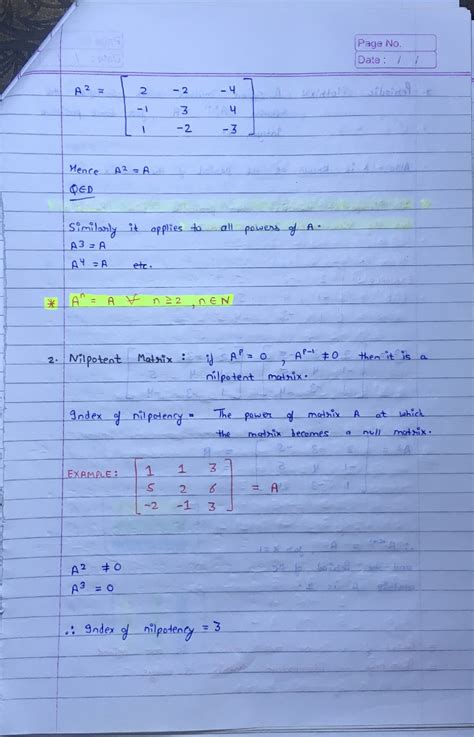 Page No.
Date : / /
A² = [ 2 -2 -4
-1 3 4
1 -2 -3 ]
Hence A² = A
QED
Similarly it applies to all powers of A.
A³ = A
A⁴ = A etc.
* Aⁿ = A ∀ n ≥ 2 , n ∈ N
2. Nilpotent Matrix : if Aᵖ = 0 , Aᵖ⁻¹ ≠ 0 then it is a
nilpotent matrix.
Index of nilpotency = The power of matrix A at which
the matrix becomes a null matrix.
EXAMPLE: [ 1 1 3
5 2 6
-2 -1 3 ] = A
A² ≠ 0
A³ = 0
∴ Index of nilpotency = 3